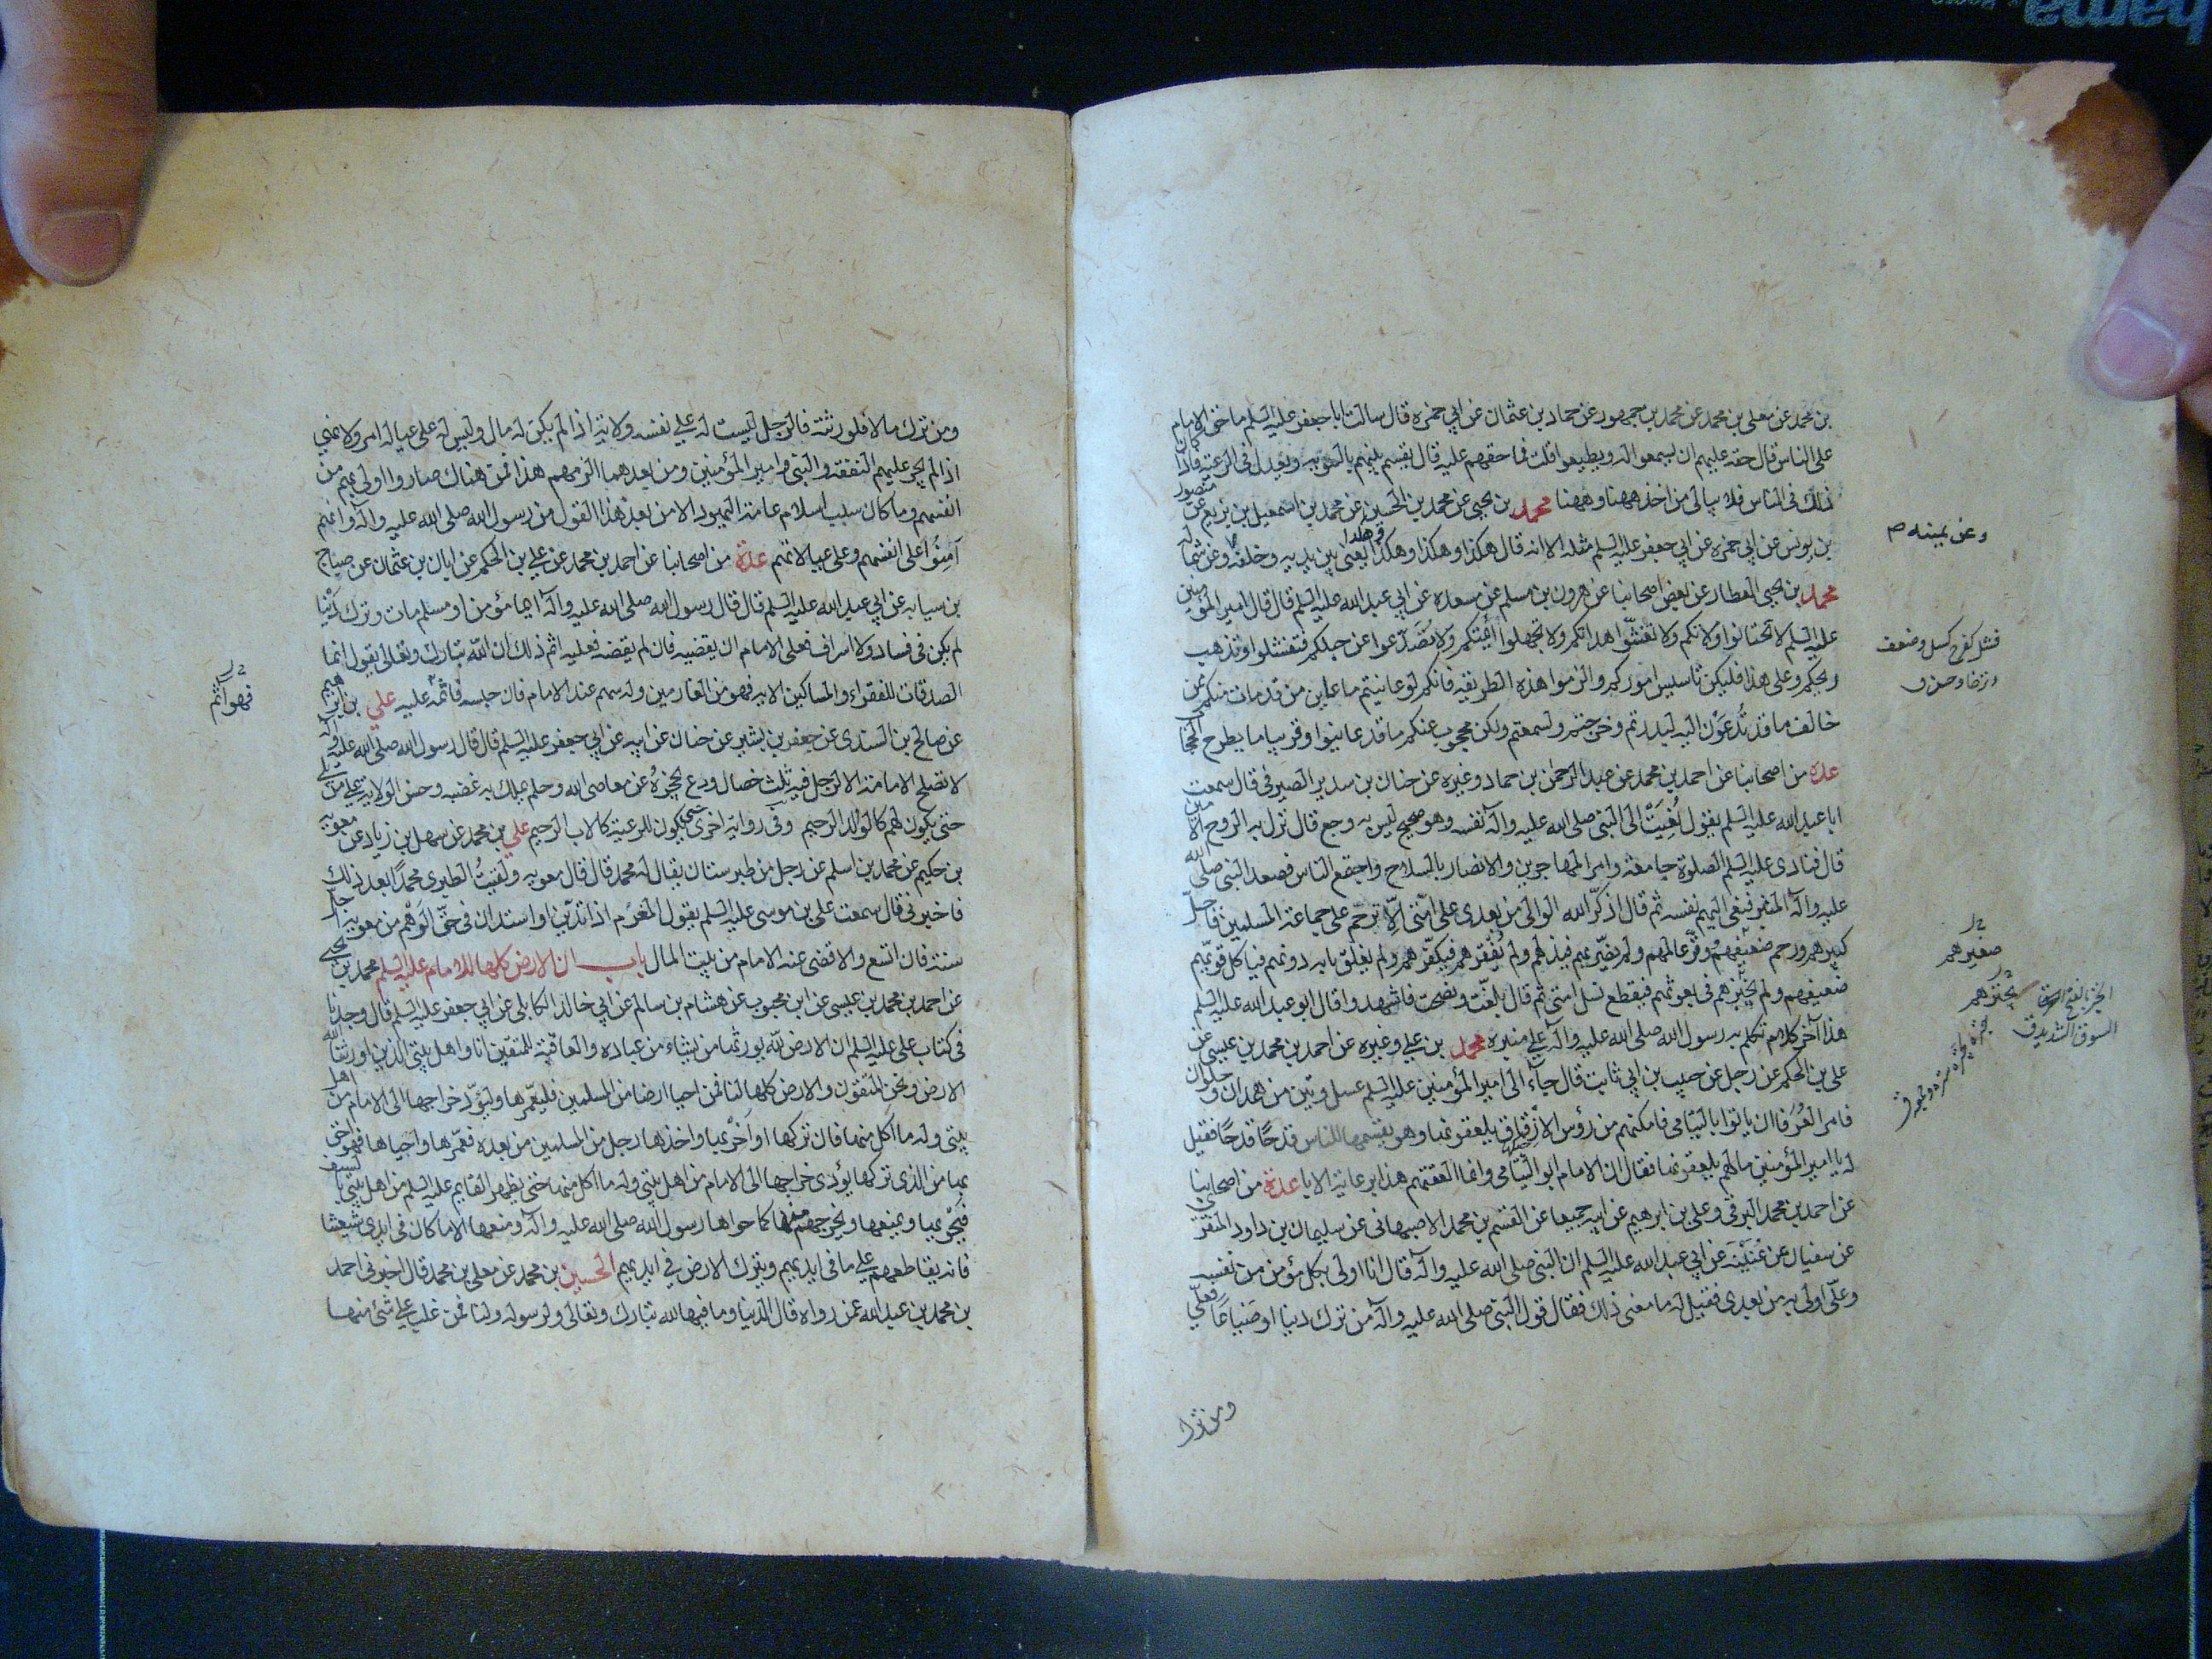 بن محمد عن معلى بن محمد عن محمد بن جمهور عن حماد بن عثمان عن ابي حمزه قال سالت ابا جعفر عليه السلم ما حق الامام
على الناس قال حقه عليهم ان يسمعوا له ويطيعوا قلت فما حقهم عليه قال يقسم بينهم بالسويه ويعدل في الرعيه فاذا كان
ذلك في الناس فلا يبالي من اخذ ههنا وههنا محمد بن يحيى عن محمد بن الحسين عن محمد بن اسمعيل بن بزيع عن منصور
بن يونس عن ابي حمزه عن ابي جعفر عليه السلم مثله الا انه قال هكذا وهكذا وهكذا وهكذا يعني بين يديه وخلفه وعن شماله
وعن يمينه ص
محمد بن يحيى العطار عن بعض اصحابنا عن هرون بن مسلم عن مسعده عن ابي عبد الله عليه السلم قال قال امير المؤمنين
عليه السلم لا تختانوا ولاتكم ولا تغشوا هداتكم ولا تجهلوا ائمتكم ولا تصدعوا عن حبلكم فتفشلوا وتذهب
فشل كفرح كسل وضعف
ريحكم وعلى هذا فليكن تاسيس اموركم والزموا هذه الطريقه فانكم لو عاينتم ما عاين من قد مات منكم ممن
خالف ما قد تدعون اليه لبدرتم وخرجتم ولسمعتم ولكن محجوب عنكم ما قد عاينوا وقريبا ما يطرح الحجاب
عدة من اصحابنا عن احمد بن محمد عن عبد الرحمن بن حماد وغيره عن حنان بن سدير الصيرفي قال سمعت
ابا عبد الله عليه السلم يقول نعيت الى النبي صلى الله عليه وآله نفسه وهو صحيح ليس به وجع قال نزل به الروح الامين
قال فنادى عليه السلم الصلوة جامعة وامر المهاجرين والانصار بالسلاح واجتمع الناس فصعد النبي صلى الله
عليه وآله المنبر فنعى اليهم نفسه ثم قال اذكر الله الوالي من بعدي على امتي الا ترحم على جماعة المسلمين فاجل
كبيرهم ورحم ضعيفهم ووقر عالمهم ولم يضر بهم فيذلهم ولم يفقرهم فيكفرهم ولم يغلق بابه دونهم فياكل قويهم
صغيرهم
ضعيفهم ولم يخبزهم في بعوثهم فيقطع نسل امتي ثم قال بلغت ونصحت فاشهدوا قال ابو عبد الله عليه السلم
هذا آخر كلام تكلم به رسول الله صلى الله عليه وآله على منبره محمد بن علي وغيره عن احمد بن محمد بن عيسى عن
علي بن الحكم عن رجل عن حبيب بن ابي ثابت قال جآء الى امير المؤمنين عليه السلم عسل وتين من همدان وحلوان
فامر العرفا ان ياتوا باليتامى فامكنهم من رؤس الازقاق يلعقونها وهو يقسمها للناس قدحا قدحا فقيل
له يا امير المؤمنين مالهم يلعقونها فقال ان الامام ابو اليتامى وانما العقتهم هذا برعاية الابا عدة من اصحابنا
عن احمد بن محمد البرقي وعلي بن ابرهيم عن ابيه جميعا عن القسم بن محمد الاصبهاني عن سليمان بن داود المنقري
عن سفيان بن عيينة عن ابي عبد الله عليه السلم ان النبي صلى الله عليه وآله قال انا اولى بكل مؤمن من نفسه
وعلي اولى به من بعدي فقيل له ما معنى ذلك فقال قول النبي صلى الله عليه وآله من ترك دينا او ضياعا فعلي
ومن ترك
ومن ترك مالا فلورثته فالرجل ليست له على نفسه ولاية اذا لم يكن له مال وليس له على عياله امر ولا نهي
اذا لم يجر عليهم النفقة والنبي وامير المؤمنين ومن بعدهما الزمهم هذا فمن هناك صاروا اولى بهم من
انفسهم وما كان سبب اسلام عامة اليهود الا من بعد هذا القول من رسول الله صلى الله عليه وآله وانهم
آمنوا على انفسهم وعلى عيالاتهم عدة من اصحابنا عن احمد بن محمد عن علي بن الحكم عن ابان بن عثمان عن صباح
بن سيابه عن ابي عبد الله عليه السلم قال قال رسول الله صلى الله عليه وآله ايما مؤمن او مسلم مات وترك دينا
لم يكن في فساد ولا اسراف فعلى الامام ان يقضيه فان لم يقضه فعليه اثم ذلك ان الله تبارك وتعالى يقول انما
الصدقات للفقراء والمساكين الايه فهو من الغارمين وله سهم عند الامام فان حبسه فاثمه عليه علي بن ابرهيم
فهو اثم
عن صالح بن السندي عن جعفر بن بشير عن حنان عن ابيه عن ابي جعفر عليه السلم قال قال رسول الله صلى الله عليه وآله
لا تصلح الامامة الا لرجل فيه ثلث خصال ورع يحجزه عن معاصي الله وحلم يملك به غضبه وحسن الولاية على من يلي
حتى يكون لهم كالوالد الرحيم وفي رواية اخرى حتى يكون للرعية كالاب الرحيم علي بن محمد عن سهل بن زياد عن معويه
بن حكيم عن محمد بن اسلم عن رجل من طبرستان يقال له محمد قال قال معويه ولقيت الطبري محمدا بعد ذلك
فاخبرني قال سمعت علي بن موسى عليه السلم يقول المغرم اذا تدين او استدان في حق الوهم من معويه اجل
سنة فان اتسع والا قضى عنه الامام من بيت المال باب ان الارض كلها للامام عليه السلم محمد بن يحيى
عن احمد بن محمد بن عيسى عن ابن محبوب عن هشام بن سالم عن ابي خالد الكابلي عن ابي جعفر عليه السلم قال وجدنا
في كتاب علي عليه السلم ان الارض لله يورثها من يشاء من عباده والعاقبة للمتقين انا واهل بيتي الذين اورثنا الله
الارض ونحن المتقون والارض كلها لنا فمن احيا ارضا من المسلمين فليعمرها وليؤد خراجها الى الامام من اهل
بيتي وله ما اكل منها فان تركها او اخربها واخذها رجل من المسلمين من بعده فعمرها واحياها فهو احق
بها من الذي تركها يؤدي خراجها الى الامام من اهل بيتي وله ما اكل منها حتى يظهر القايم عليه السلم من اهل بيتي بالسيف
فيحويها ويمنعها ويخرجهم منها كما حواها رسول الله صلى الله عليه وآله ومنعها الا ما كان في ايدي شيعتنا
فانه يقاطعهم على ما في ايديهم ويترك الارض في ايديهم الحسين بن محمد عن معلى بن محمد قال اخبرني احمد
بن محمد بن عبد الله عمن رواه قال الدنيا وما فيها لله تبارك وتعالى ولرسوله ولنا فمن غلب على شئ منها